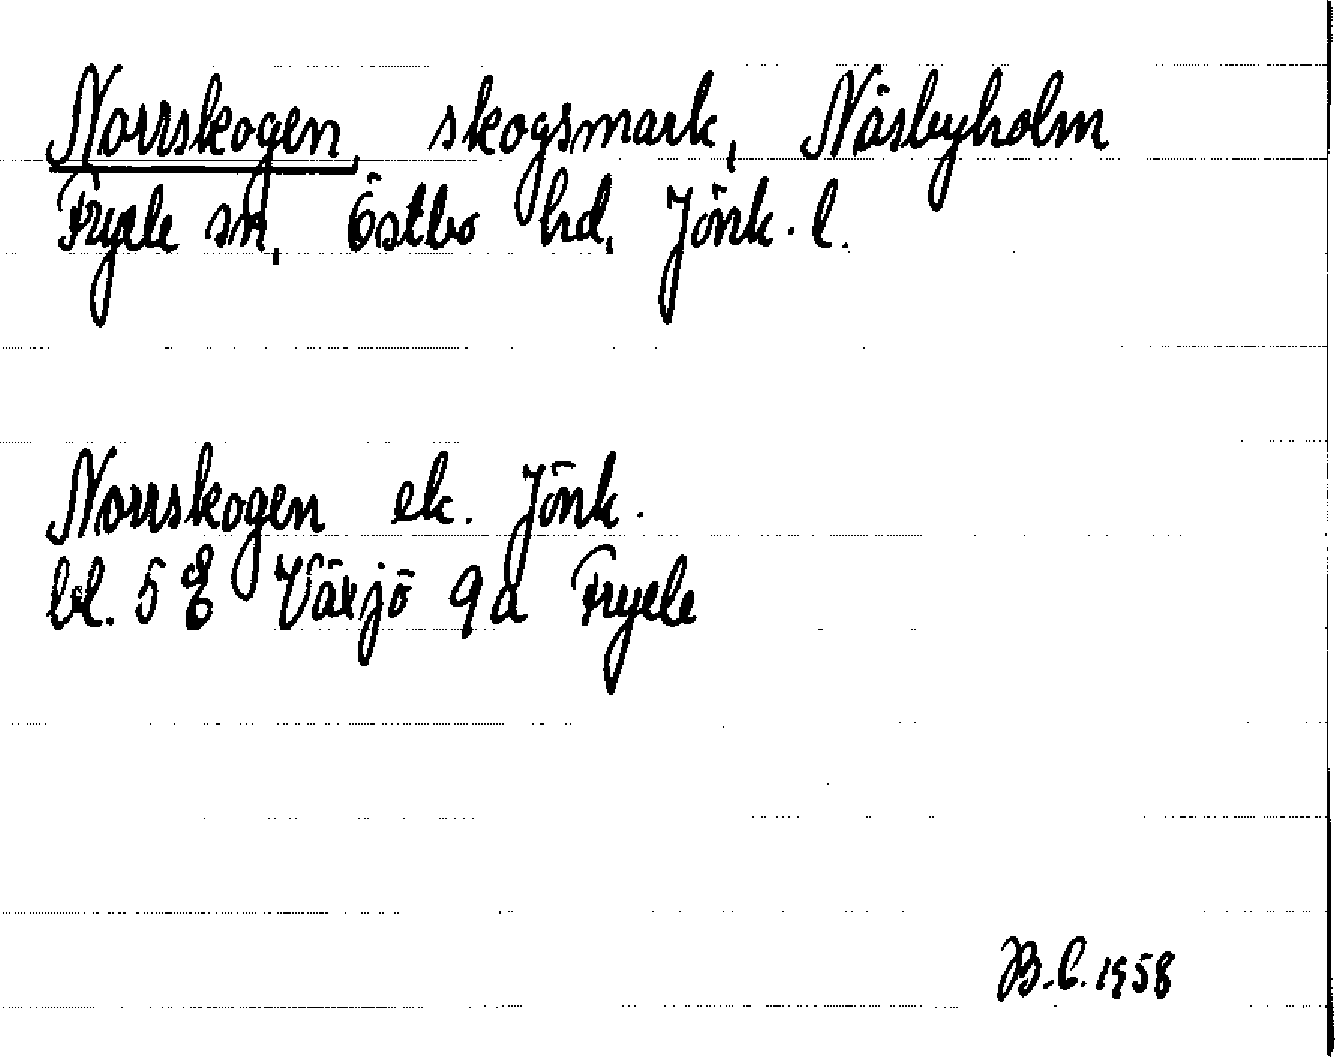 Norrskogen, skogsmark, Näsbyholm
Fryele sn, Östbo hd, Jönk. l.
Norrskogen ek. Jönk.
bl. 5 E Växjö 9a Fryele
B.C. 1958